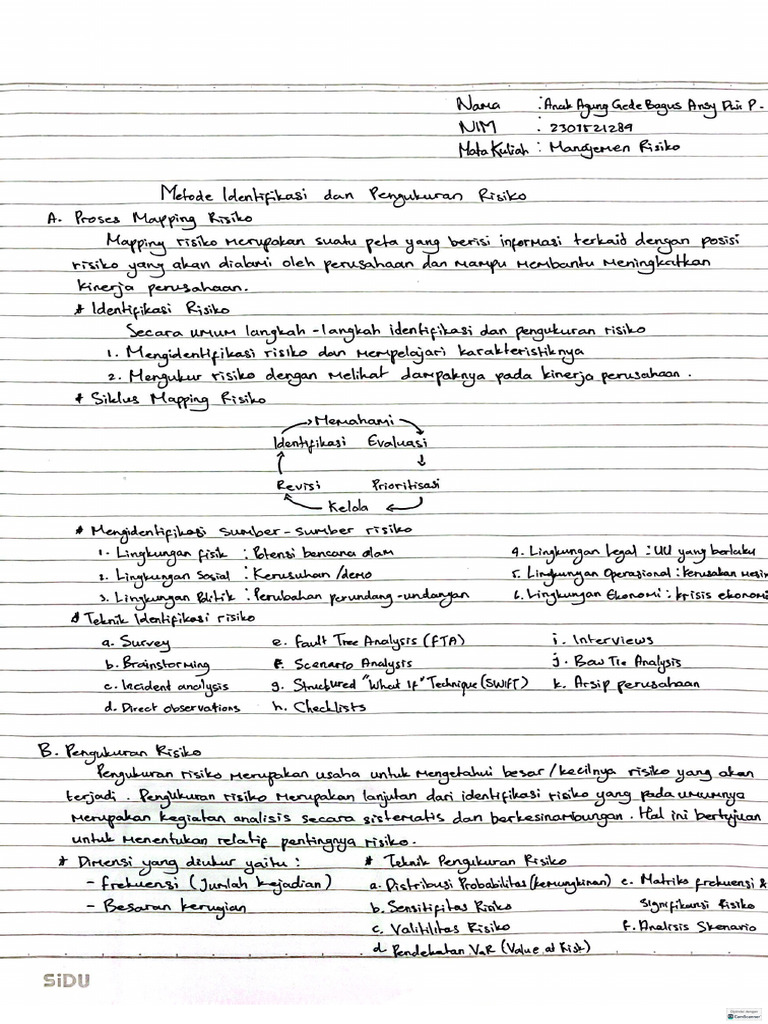 Nama : Anak Agung Gede Bagus Ansy Dwi P.
NIM : 2301521289
Mata Kuliah : Manajemen Risiko
Metode Identifikasi dan Pengukuran Risiko
A. Proses Mapping Risiko
Mapping risiko merupakan suatu peta yang berisi informasi terkaid dengan posisi
risiko yang akan dialami oleh perusahaan dan mampu membantu meningkatkan
kinerja perusahaan.
* Identifikasi Risiko
Secara umum langkah-langkah identifikasi dan pengukuran risiko
1. Mengidentifikasi risiko dan mempelajari karakteristiknya
2. Mengukur risiko dengan melihat dampaknya pada kinerja perusahaan.
* Siklus Mapping Risiko
Memahami
Identifikasi Evaluasi
Revisi Prioritisasi
Kelola
* Mengidentifikasi sumber-sumber risiko
1. Lingkungan fisik : Potensi bencana alam 4. Lingkungan Legal : UU yang berlaku
2. Lingkungan Sosial : Kerusuhan / demo 5. Lingkungan Operasional : kerusakan mesin
3. Lingkungan Politik : Perubahan perundang-undangan 6. Lingkungan Ekonomi : krisis ekonomi
* Teknik Identifikasi risiko
a. Survey e. Fault Tree Analysis (FTA) i. Interviews
b. Brainstorming f. Scenario Analysis j. Bow Tie Analysis
c. Incident analysis g. Structured "What If" Technique (SWIFT) k. Arsip perusahaan
d. Direct observations h. Checklists
B. Pengukuran Risiko
Pengukuran risiko merupakan usaha untuk mengetahui besar/kecilnya risiko yang akan
terjadi. Pengukuran risiko merupakan lanjutan dari identifikasi risiko yang pada umumnya
merupakan kegiatan analisis secara sistematis dan berkesinambungan. Hal ini bertujuan
untuk menentukan relatif pentingnya risiko.
* Dimensi yang diukur yaitu : * Teknik Pengukuran Risiko
- frekuensi (Jumlah kejadian) a. Distribusi Probabilitas (kemungkinan) e. Matriks frekuensi &
- Besaran kerugian b. Sensitifitas Risiko Signifikansi Risiko
c. Valitilitas Risiko f. Analisis Skenario
d. Pendekatan VaR (Value at Risk)
SiDU
CamScanner